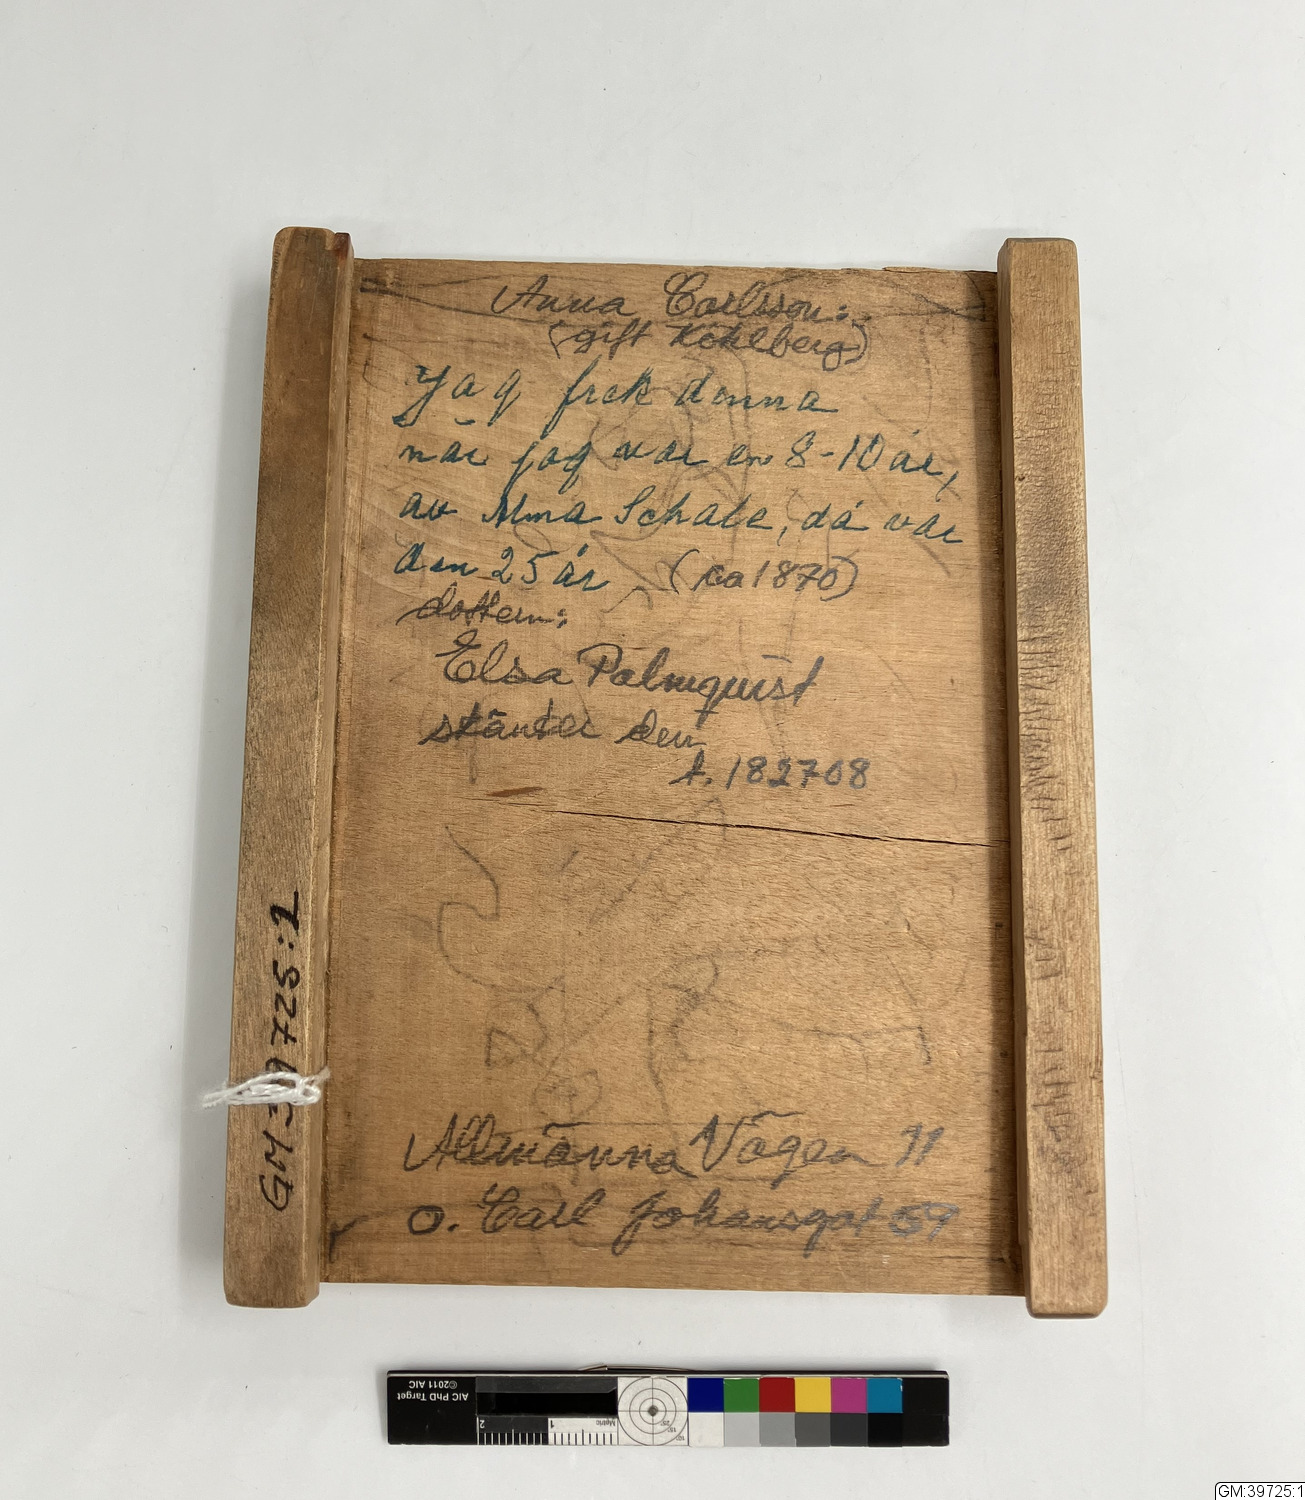 Anna Carlsson:
(gift Kohlberg)
Jag fick denna
när jag var en 8-10 år,
av Alma Schale, då var
den 25 år. (ca 1870)
dottern:
Elsa Palmquist
skänker den
t. 182708
Allmänna Vägen 11
o. Carl Johansgat 59
GM 39725:1
AIC PhD Target
©2011 AIC
2 1 Metric
GM:39725:1